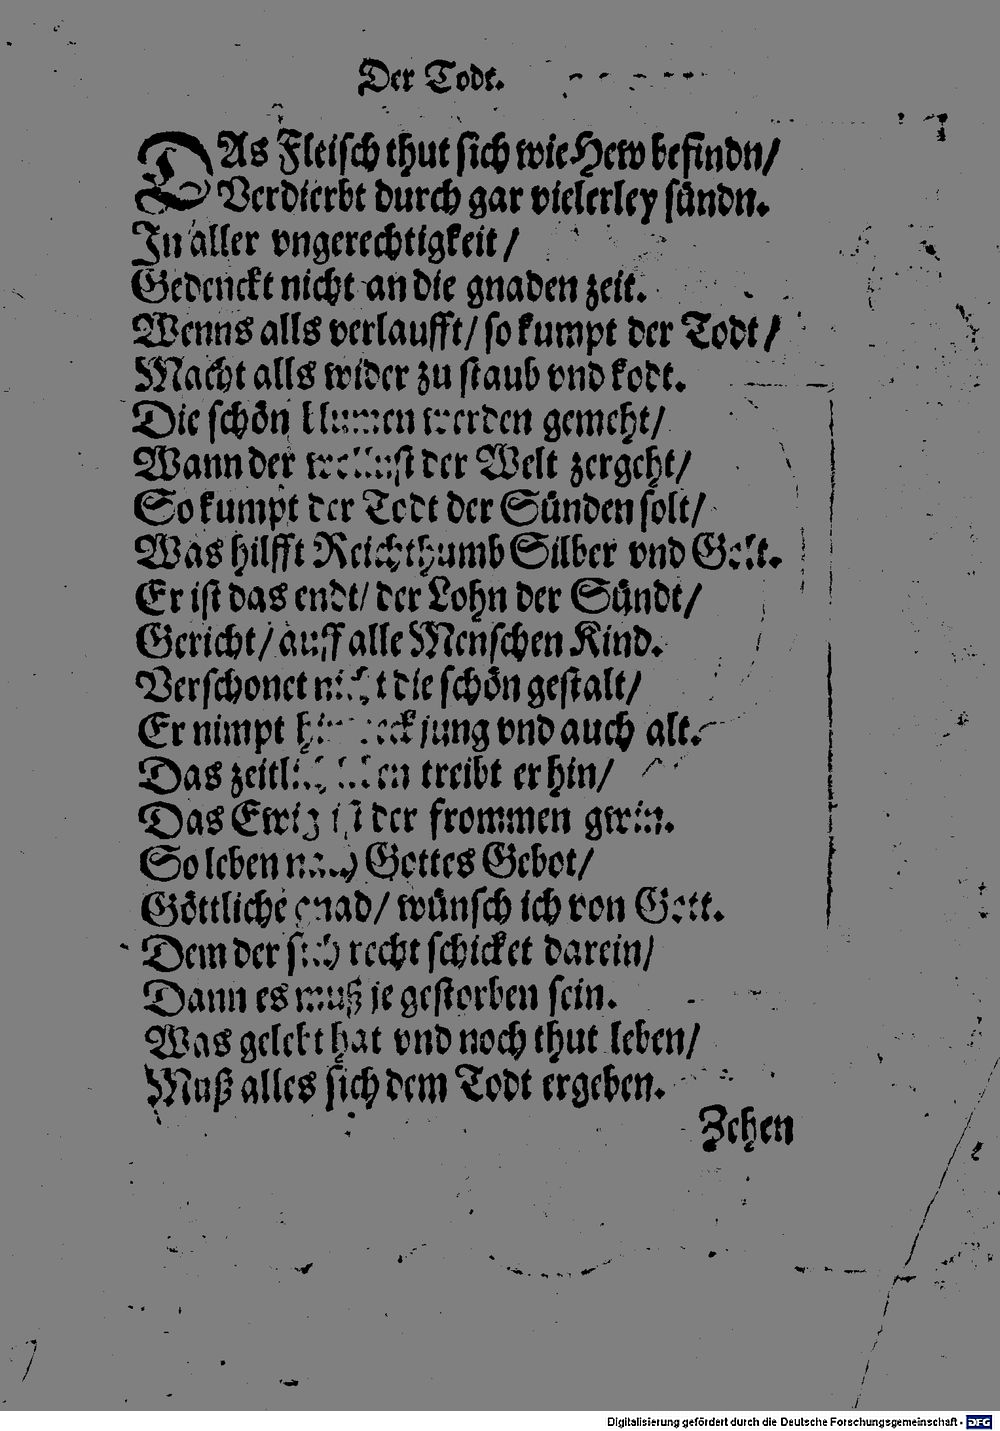 Der Todt.
DAs Fleisch thut sich wie Hew befindn/
Verdierbt durch gar vielerley sündn.
In aller vngerechtigkeit/
Gedenckt nicht an die gnaden zeit.
Wenns alls verlaufft/ so kumpt der Todt/
Macht alls wider zu staub vnd kodt.
Die schön blumen werden gemeht/
Wann der wollust der Welt zergeht/
So kumpt der Todt der Sünden solt/
Was hilfft Reichthumb Silber vnd Golt.
Er ist das endt/ der Lohn der Sündt/
Gericht/ auff alle Menschen Kind.
Verschonet nicht die schön gestalt/
Er nimpt hinweck jung vnd auch alt.
Das zeitlich leben treibt er hin/
Das Ewig ist der frommen gwin.
So leben nach Gottes Gebot/
Göttliche gnad/ wünsch ich von Gott.
Dem der sich recht schicket darein/
Dann es muß je gestorben sein.
Was gelebt hat vnd noch thut leben/
Muß alles sich dem Todt ergeben.
Zehen
Digitalisierung gefördert durch die Deutsche Forschungsgemeinschaft - DFG